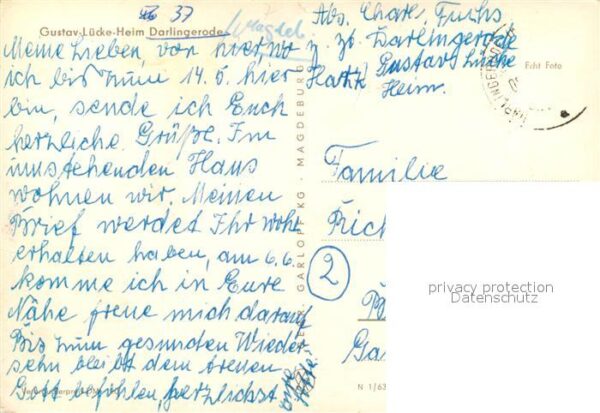 37
Gustav-Lücke-Heim Darlingerode
Magdeb.
Meine Lieben, von hier, wo
ich bis zum 14. 5. hier
bin, sende ich Euch
herzliche Grüße. Im
umstehenden Haus
wohnen wir. Meinen
Brief werdet Ihr wohl
erhalten haben, am 6.6.
komme ich in Eure
Nähe freue mich darauf
Bis zum gesunden Wieder-
sehn bleibt dem treuen
Gott befohlen, herzlichst
Abs. Charl. Fuchs
z. Zt. Darlingerode
Harz Gustav Lücke
Heim.
Echt Foto
GARLOFF KG · MAGDEBURG
Familie
Rich
2
N 1/63
privacy protection
Datenschutz